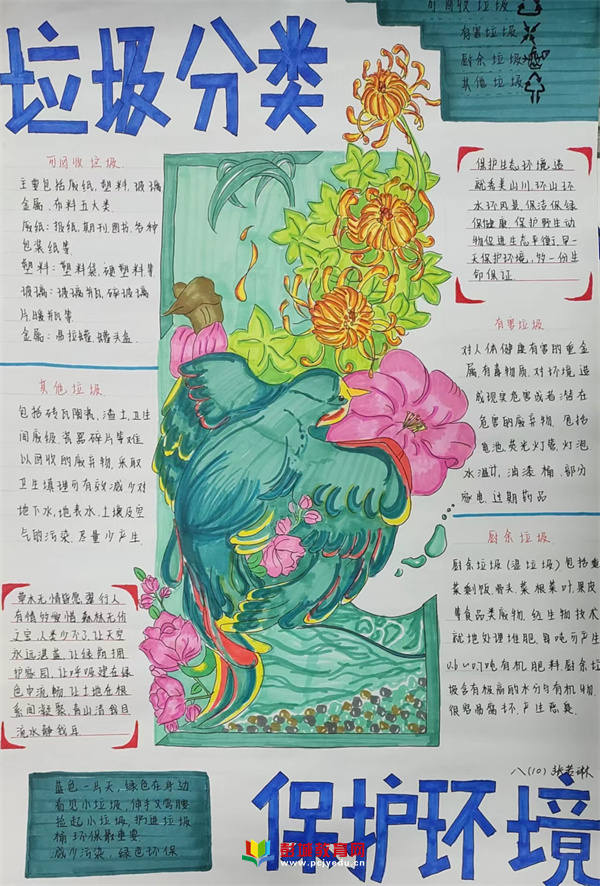 垃圾分类
可回收垃圾
有害垃圾
厨余垃圾
其他垃圾
可回收垃圾
主要包括废纸、塑料、玻璃
金属、布料五大类.
废纸:报纸、期刊、图书、各种
包装纸等.
塑料:塑料袋、硬塑料等
玻璃:玻璃瓶、碎玻璃
片、暖瓶等.
金属:易拉罐、罐头盒.
保护生态环境,造
就秀美山川,环山环
水环风景,保洁保绿
保健康,保护野生动
物促进生态平衡,早一
天保护环境,多一份生
命保证
有害垃圾
对人体健康有害的重金
属、有毒物质,对环境造
成现实危害或者潜在
危害的废弃物,包括
电池、荧光灯管、灯泡
水温计、油漆桶、部分
家电、过期药品
其他垃圾
包括砖瓦陶瓷、渣土、卫生
间废纸、瓷器碎片等难
以回收的废弃物,采取
卫生填埋可有效减少对
地下水、地表水、土壤及空
气的污染,尽量少产生.
厨余垃圾
厨余垃圾(湿垃圾)包括剩
菜剩饭、骨头、菜根菜叶、果皮
等食品类废物,经生物技术
就地处理堆肥,每吨可产生
0.6~0.7吨有机肥料.厨余垃
圾含有极高的水分与有机物,
很容易腐坏,产生恶臭.
草木无情皆愿翠,行人
有情
人类少不了,让天空
永远湛蓝,让绿荫拥
护家园,让呼吸建在绿
色中流畅,让土地在根
系间凝聚,青山清我目
流水静我耳
八(10) 张若琳
蓝色一片天,绿色在身边
看见小垃圾,伸手又弯腰
捡起小垃圾,扔进垃圾
桶 环保最重要
减少污染,绿色环保
保护环境
彭埠教育网
www.pcjyedu.cn